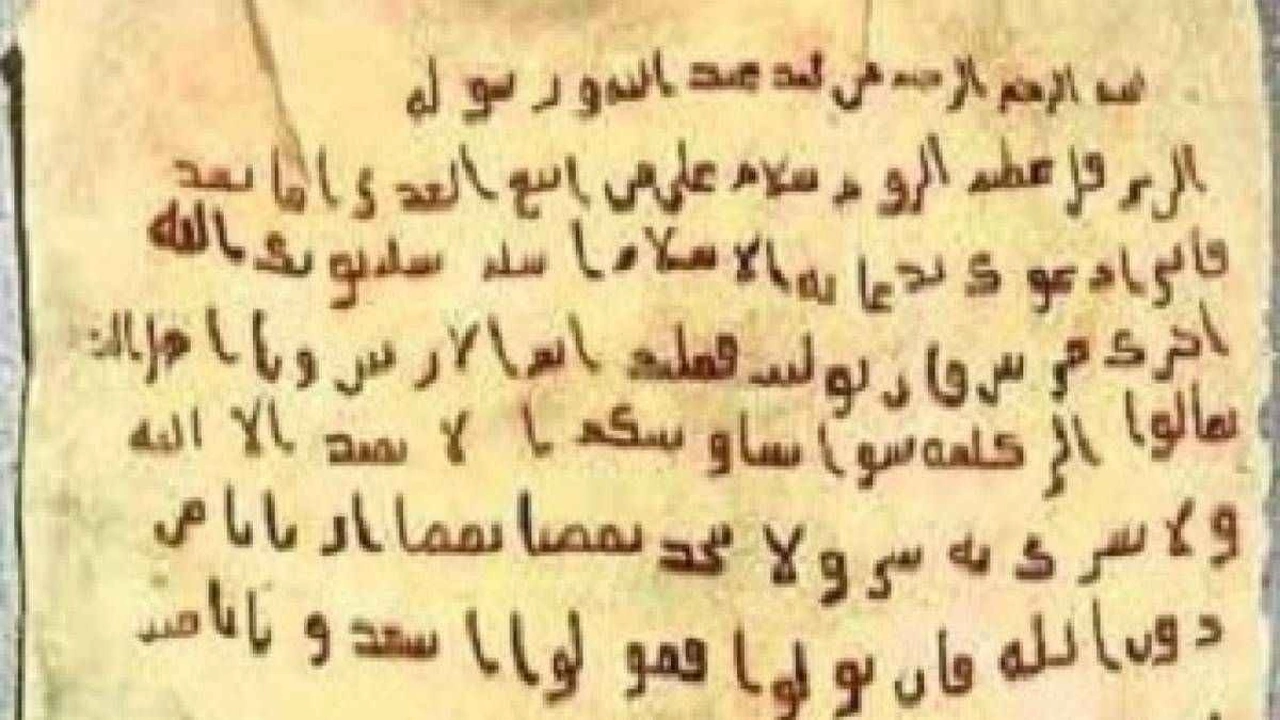 بسم الله الرحمن الرحيم من محمد عبد الله و رسوله
الى هرقل عظيم الروم سلام على من اتبع الهدى اما بعد
فاني ادعوك بدعاية الاسلام اسلم تسلم يوتك الله
اجرك مرتين فان توليت فعليك اثم الاريسين ويا اهل الكتاب
تعالوا الى كلمة سوا بيننا وبينكم ا لا نعبد الا الله
ولا نشرك به شي ولا يتخذ بعضنا بعضا اربابا من
دون الله فان تولوا فقولوا اشهدو بانا مسلمين